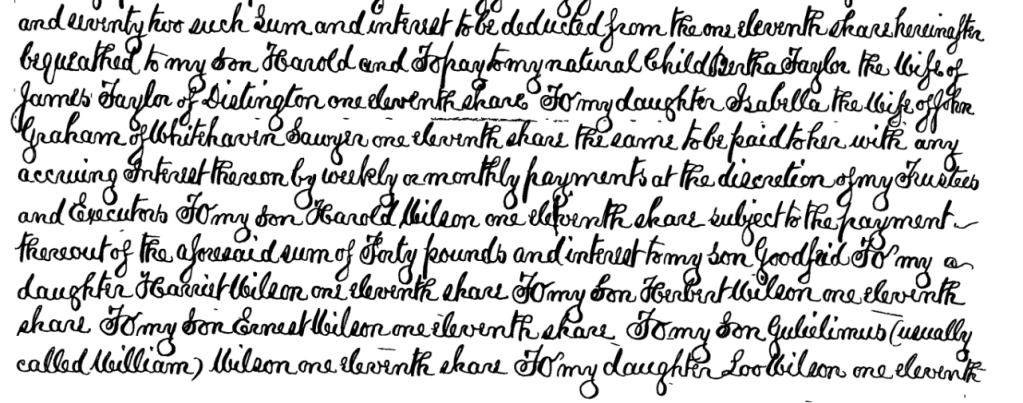 and seventy two such sum and interest to be deducted from the one eleventh share hereinafter
bequeathed to my Son Harold and To pay to my natural Child Bertha Taylor the Wife of
James Taylor of Distington one eleventh share To my daughter Isabella the Wife of John
Graham of Whitehaven Sawyer one eleventh share the same to be paid to her with any
accruing Interest thereon by weekly or monthly payments at the discretion of my Trustees
and Executors To my Son Harold Wilson one eleventh share subject to the payment
thereout of the aforesaid sum of Forty pounds and interest to my son To my
daughter Harriet Wilson one eleventh share To my Son Herbert Wilson one eleventh
share To my Son Ernest Wilson one eleventh share To my Son Gulielimus (usually
called William) Wilson one eleventh share To my daughter Loo Wilson one eleventh